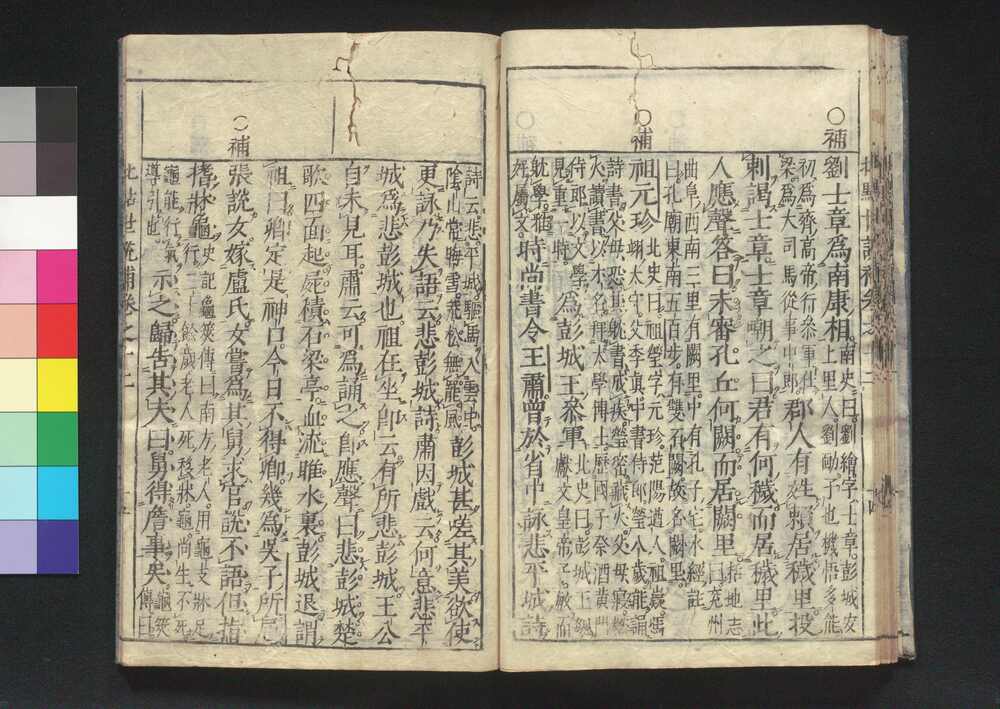 校點世說補卷之十二
○補
劉士章為南康相
南史曰劉繪字士章彭城安
上里人劉勔子也機悟多能
初為齊高帝行參軍仕
梁為大司馬從事中郎
郡人有姓賴居穢里投
刺謁士章士章嘲之曰君有何穢而居穢里此
人應聲答曰未審孔丘何闕而居闕里
括地志
曰兗州
曲阜縣西南三里有闕里中有孔子宅水經註
曰孔廟東南五百步有雙石闕故名闕里
○補
祖元珍
北史曰祖瑩字元珍范陽遒人祖嶷馮
翊太守父季真中書侍郎瑩八歲能誦
詩書父母恐其躭書成疾瑩密藏火父母寢然
火讀書以才名拜太學博士歷國子祭酒黃門
侍郎以文學
見重一時
為彭城王參軍
北史曰彭城王勰
獻文皇帝子敏而
躭學雅好
屬文
時尚書令王肅曾於省中詠悲平城詩
詩云悲平城驅馬入雲中
陰山常晦雪荒松無罷風
彭城甚嗟其美欲使
更詠乃失語云悲彭城詩肅因戲云何意悲平
城為悲彭城也祖在坐即云有所悲彭城王公
自未見耳肅云可為誦之即應聲曰悲彭城楚
歌四面起屍積石梁亭血流睢水裏彭城退謂
祖曰卿定是神口今日不得卿幾為吳子所屈
○補
張說女嫁盧氏女嘗為其舅求官說不語但指
搘牀龜
史記龜筴傳曰南方老人用龜支牀足
行二十餘歲老人死移牀龜尚生不死
龜能行氣
導引也
示之歸告其夫曰舅得詹事矣
龜筴
傳曰